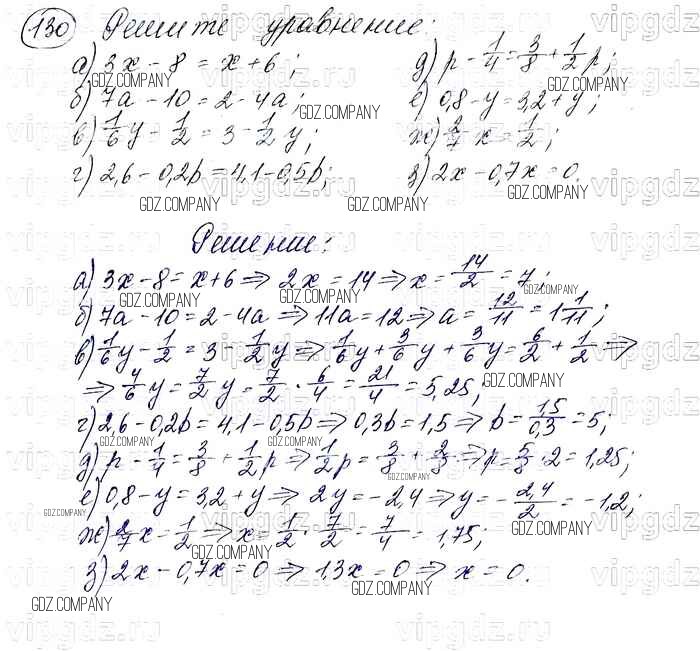 130 Решите уравнение:
а) 3x - 8 = x + 6; д) p - 1/4 = 3/8 + 1/2 p;
б) 7a - 10 = 2 - 4a; е) 0,8 - y = 3,2 + y;
в) 1/6 y - 1/2 = 3 - 1/2 y; ж) 2/7 x = 1/2;
г) 2,6 - 0,2b = 4,1 - 0,5b; з) 2x - 0,7x = 0.
Решение:
а) 3x - 8 = x + 6 ⇒ 2x = 14 ⇒ x = 14/2 = 7;
б) 7a - 10 = 2 - 4a ⇒ 11a = 12 ⇒ a = 12/11 = 1 1/11;
в) 1/6 y - 1/2 = 3 - 1/2 y ⇒ 1/6 y + 3/6 y + 3/6 y = 6/2 + 1/2 ⇒
⇒ 4/6 y = 7/2 y = 7/2 · 6/4 = 21/4 = 5,25;
г) 2,6 - 0,2b = 4,1 - 0,5b ⇒ 0,3b = 1,5 ⇒ b = 1,5/0,3 = 5;
д) p - 1/4 = 3/8 + 1/2 p ⇒ 1/2 p = 3/8 + 2/8 ⇒ p = 5/8 · 2 = 1,25;
е) 0,8 - y = 3,2 + y ⇒ 2y = -2,4 ⇒ y = - 2,4/2 = -1,2;
ж) 2/7 x - 1/2 ⇒ x = 1/2 · 7/2 = 7/4 = 1,75;
з) 2x - 0,7x = 0 ⇒ 1,3x = 0 ⇒ x = 0.
GDZ.COMPANY
vipgdz.ru